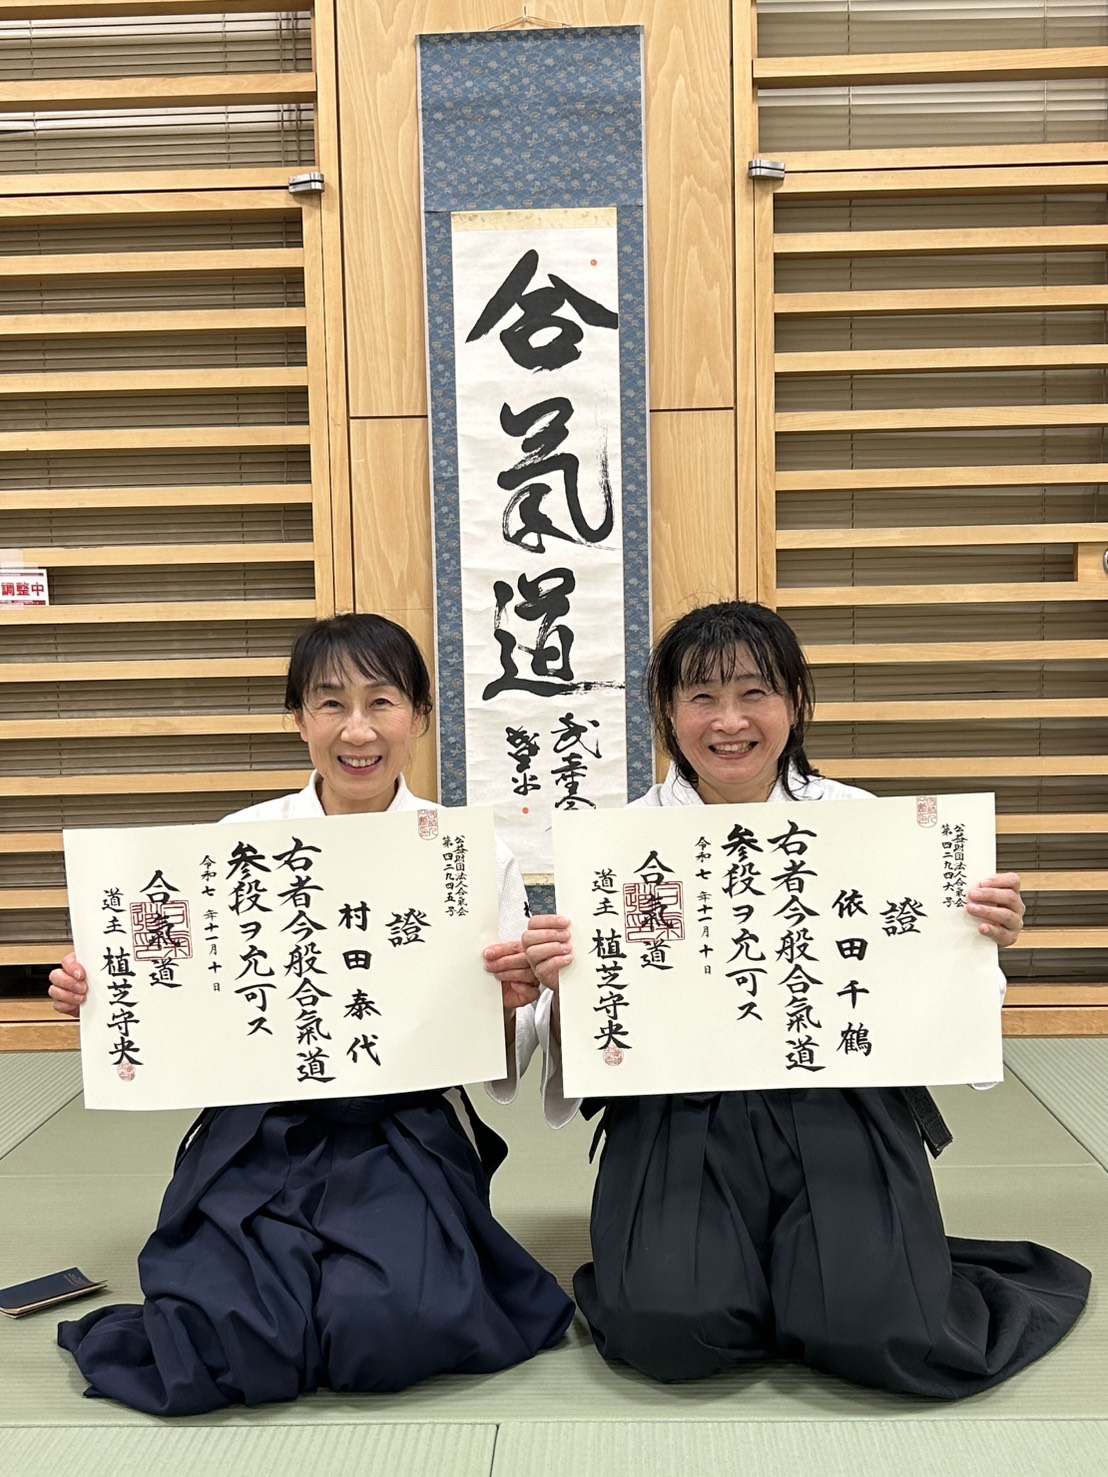 合氣道
調整中
公益財団法人合氣会
第四二九四五号
證
村田泰代
右者今般合氣道
参段ヲ允可ス
令和七年十一月十日
合氣道
道主 植芝守央
公益財団法人合氣会
第四二九四六号
證
依田千鶴
右者今般合氣道
参段ヲ允可ス
令和七年十一月十日
合氣道
道主 植芝守央